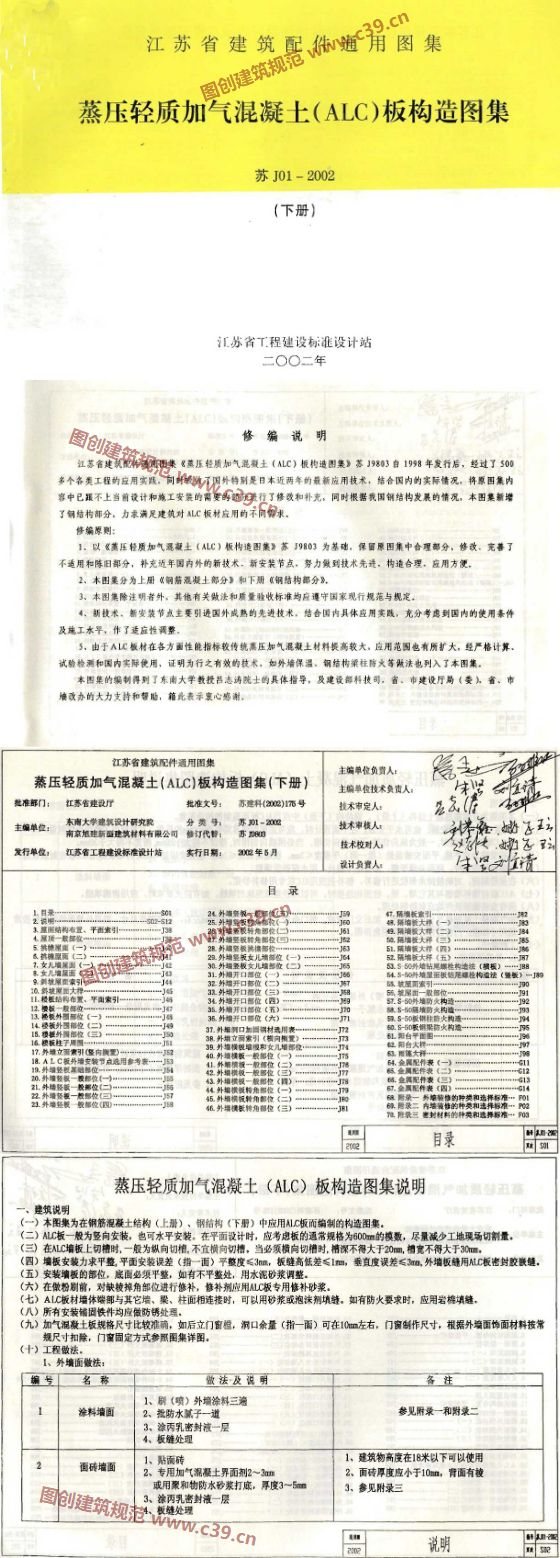 江苏省建筑配件通用图集
图创建筑规范 www.c39.cn
蒸压轻质加气混凝土(ALC)板构造图集
苏 J01－2002
(下册)
江苏省工程建设标准设计站
二〇〇二年
修 编 说 明
江苏省建筑配件通用图集《蒸压轻质加气混凝土(ALC)板构造图集》苏 J9803 自 1998 年发行后，经过了 500
多个各类工程的应用实践，同时吸取了国外特别是日本近两年的最新应用技术，结合国内的实际情况，将原图集内
容中已跟不上当前设计和施工安装的需要的地方进行了修改和补充，同时根据我国钢结构发展的情况，本图集新增
了钢结构部分，力求满足建筑对 ALC 板材应用的不同需求。
修编原则：
1、以《蒸压轻质加气混凝土(ALC)板构造图集》苏 J9803 为基础，保留原图集中合理部分，修改、完善了
不适用和陈旧部分，补充近年国内外的新技术、新安装节点，努力做到技术先进，构造合理，应用方便。
2、本图集分为上册《钢筋混凝土部分》和下册《钢结构部分》。
3、本图集除注明者外，其他有关做法和质量验收标准均应遵守国家现行规范与规定。
4、新技术、新安装节点主要引进国外成熟的先进技术，结合国内具体应用实践，充分考虑到国内的使用条件
及施工水平，作了适应性调整。
5、由于 ALC 板材在各方面性能指标较传统蒸压加气混凝土材料提高较大，应用范围也有所扩大，经严格计算、
试验检测和国内实际使用，证明为行之有效的技术，如外墙保温、钢结构梁柱防火等做法也列入了本图集。
本图集的编制得到了东南大学教授吕志涛院士的具体指导，及建设部科技司、省、市建设厅局(委)、省、市
墙改办的大力支持和帮助，籍此表示衷心感谢。
江苏省建筑配件通用图集
蒸压轻质加气混凝土(ALC)板构造图集(下册)
批准部门： 江苏省建设厅 批准文号： 苏建科(2002)175号
主编单位： 东南大学建筑设计研究院 分 类 号： 苏 J01－2002
南京旭建新型建筑材料有限公司 修订代替： 苏 J9803
发行单位： 江苏省工程建设标准设计站 实行日期： 2002 年 5 月
主编单位负责人：
主编单位技术负责人：
技术审定人：
技术审核人：
技术校对人：
设计负责人：
目 录
1. 目录 S01
2. 说明 S02-S12
3. 屋面结构布置、平面索引 J38
4. 屋顶一般部位 J39
7. 女儿墙屋面(一) J42
11. 楼板结构布置、平面索引 J46
12. 楼板一般部位 J47
13. 楼板外围部位(一) J48
14. 楼板外围部位(二) J49
15. 楼板外围部位(三) J50
16. 楼板柱子周围 J51
17. 外墙立面索引(竖向搁置) J52
18. ALC板外墙安装节点选用参考表 J53
19. 外墙竖板基础部位 J54
20. 外墙竖板一般部位(一) J55
21. 外墙竖板一般部位(二) J56
22. 外墙竖板一般部位(三) J57
23. 外墙竖板一般部位(四) J58
31. 外墙开口部位(一) J66
32. 外墙开口部位(二) J67
33. 外墙开口部位(三) J68
34. 外墙开口部位(四) J69
35. 外墙开口部位(五) J70
36. 外墙开口部位(六) J71
37. 外墙洞口加固钢材选用表 J72
38. 外墙立面索引(横向搁置) J73
39. 外墙横板墙根和女儿墙部位 J74
40. 外墙横板一般部位(一) J75
41. 外墙横板一般部位(二) J76
42. 外墙横板一般部位(三) J77
43. 外墙横板一般部位(四) J78
44. 外墙横板转角部位(一) J79
45. 外墙横板转角部位(二) J80
46. 外墙横板转角部位(三) J81
47. 隔墙板索引 J82
48. 隔墙板大样(一) J83
49. 隔墙板大样(二) J84
50. 隔墙板大样(三) J85
51. 隔墙板大样(四) J86
52. 隔墙板大样(五) J87
53. S-50外墙钻尾螺栓构造法(横板) J88
54. S-50外墙屋面板钻尾螺栓构造法(竖板) J89
55. 坡屋面索引 J90
56. 坡屋面一般部位 J91
57. S-50外墙防火构造 J92
58. S-50外墙防火构造 J93
59. S-50板钢柱防火构造 J94
60. S-50板钢梁防火构造 J95
61. 阳台平面图 J96
62. 阳台大样 J97
63. 雨蓬大样 J98
64. 金属配件表(一) G11
65. 金属配件表(二) G12
66. 金属配件表(三) G13
67. 金属配件表(四) G14
68. 附录一 外墙装修的种类和选择标准 F01
69. 附录二 内墙装修的种类和选择标准 F02
70. 附录三 密封材料的种类和选择标准 F03
2002 目录 S01
蒸压轻质加气混凝土(ALC)板构造图集说明
一、建筑说明
(一)本图集为在钢筋混凝土结构(上册)、钢结构(下册)中应用ALC板而编制的构造图集。
(二)ALC板一般为竖向安装，也可水平安装。在平面设计时，应考虑板的通常规格为600mm的模数，尽量减少工地现场切割量。
(三)在ALC墙板上切槽时，一般为纵向切槽,不宜横向切槽。当必须横向切槽时,槽深不得大于20mm,槽宽不得大于30mm。
(四)墙板安装力求平整,平面安装误差(指一面)平整度≤3mm，板缝高低差≤1mm，垂直度误差≤3mm,外墙板缝用ALC板密封胶嵌缝。
(五)安装墙板的部位，底面必须平整，如有不平整处，用水泥砂浆调整。
(六)在做粉刷前，对缺棱掉角部位进行修补，修补剂应用ALC板专用修补砂浆。
(七)ALC板材墙体端部与其它墙、梁、柱面相连接时，可以用砂浆或泡沫剂填缝。如有防火要求时，应用岩棉填缝。
(八)所有安装锚固铁件均应做防锈处理。
(九)加气混凝土板规格尺寸比较准确，如后立门窗框，洞口余量(指一面)可在10mm左右，门窗制作尺寸，根据外墙面饰面材料按常
规尺寸扣除，门窗固定方式参照图集详图。
(十)工程做法。
1、外墙面做法：
编 号 名 称 做 法 及 说 明 备 注
1 涂料墙面 1、刷(喷)外墙涂料三遍
2、批防水腻子一道
3、涂丙乳密封液一层
4、板缝处理
参见附录一和附录二
2 面砖墙面 1、贴面砖
2、专用加气混凝土界面剂2～3mm
或用聚和物防水砂浆打底，厚度3～5mm
3、涂丙乳密封液一层
4、板缝处理
1、建筑物高度在18米以下可以使用
2、面砖厚度应小于10mm，背面有棱
3、参见附录三
图创建筑规范 www.c39.cn
2002 说明 S02